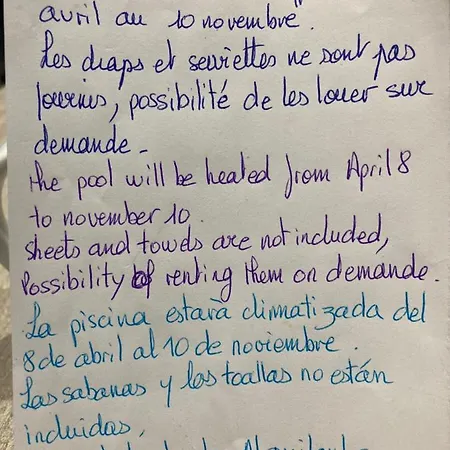 avril au 10 novembre"
Les draps et serviettes ne sont pas
fournis, possibilité de les louer sur
demande -
the pool will be heated from April 8
to november 10.
sheets and towels are not included,
Possibility of renting them on demande.
La piscina estará climatizada del
8 de abril al 10 de noviembre.
Las sabanas y las toallas no están
incluidas,